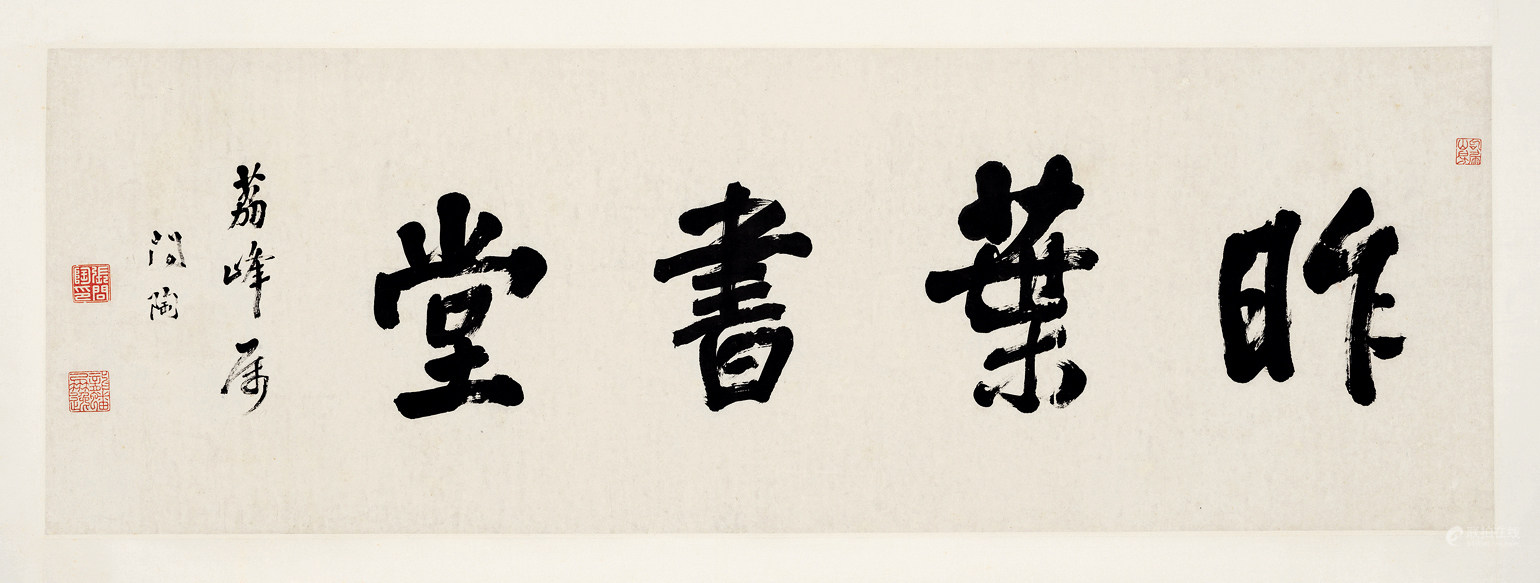 昨葉書堂
荔峰属
問陶
張問陶印